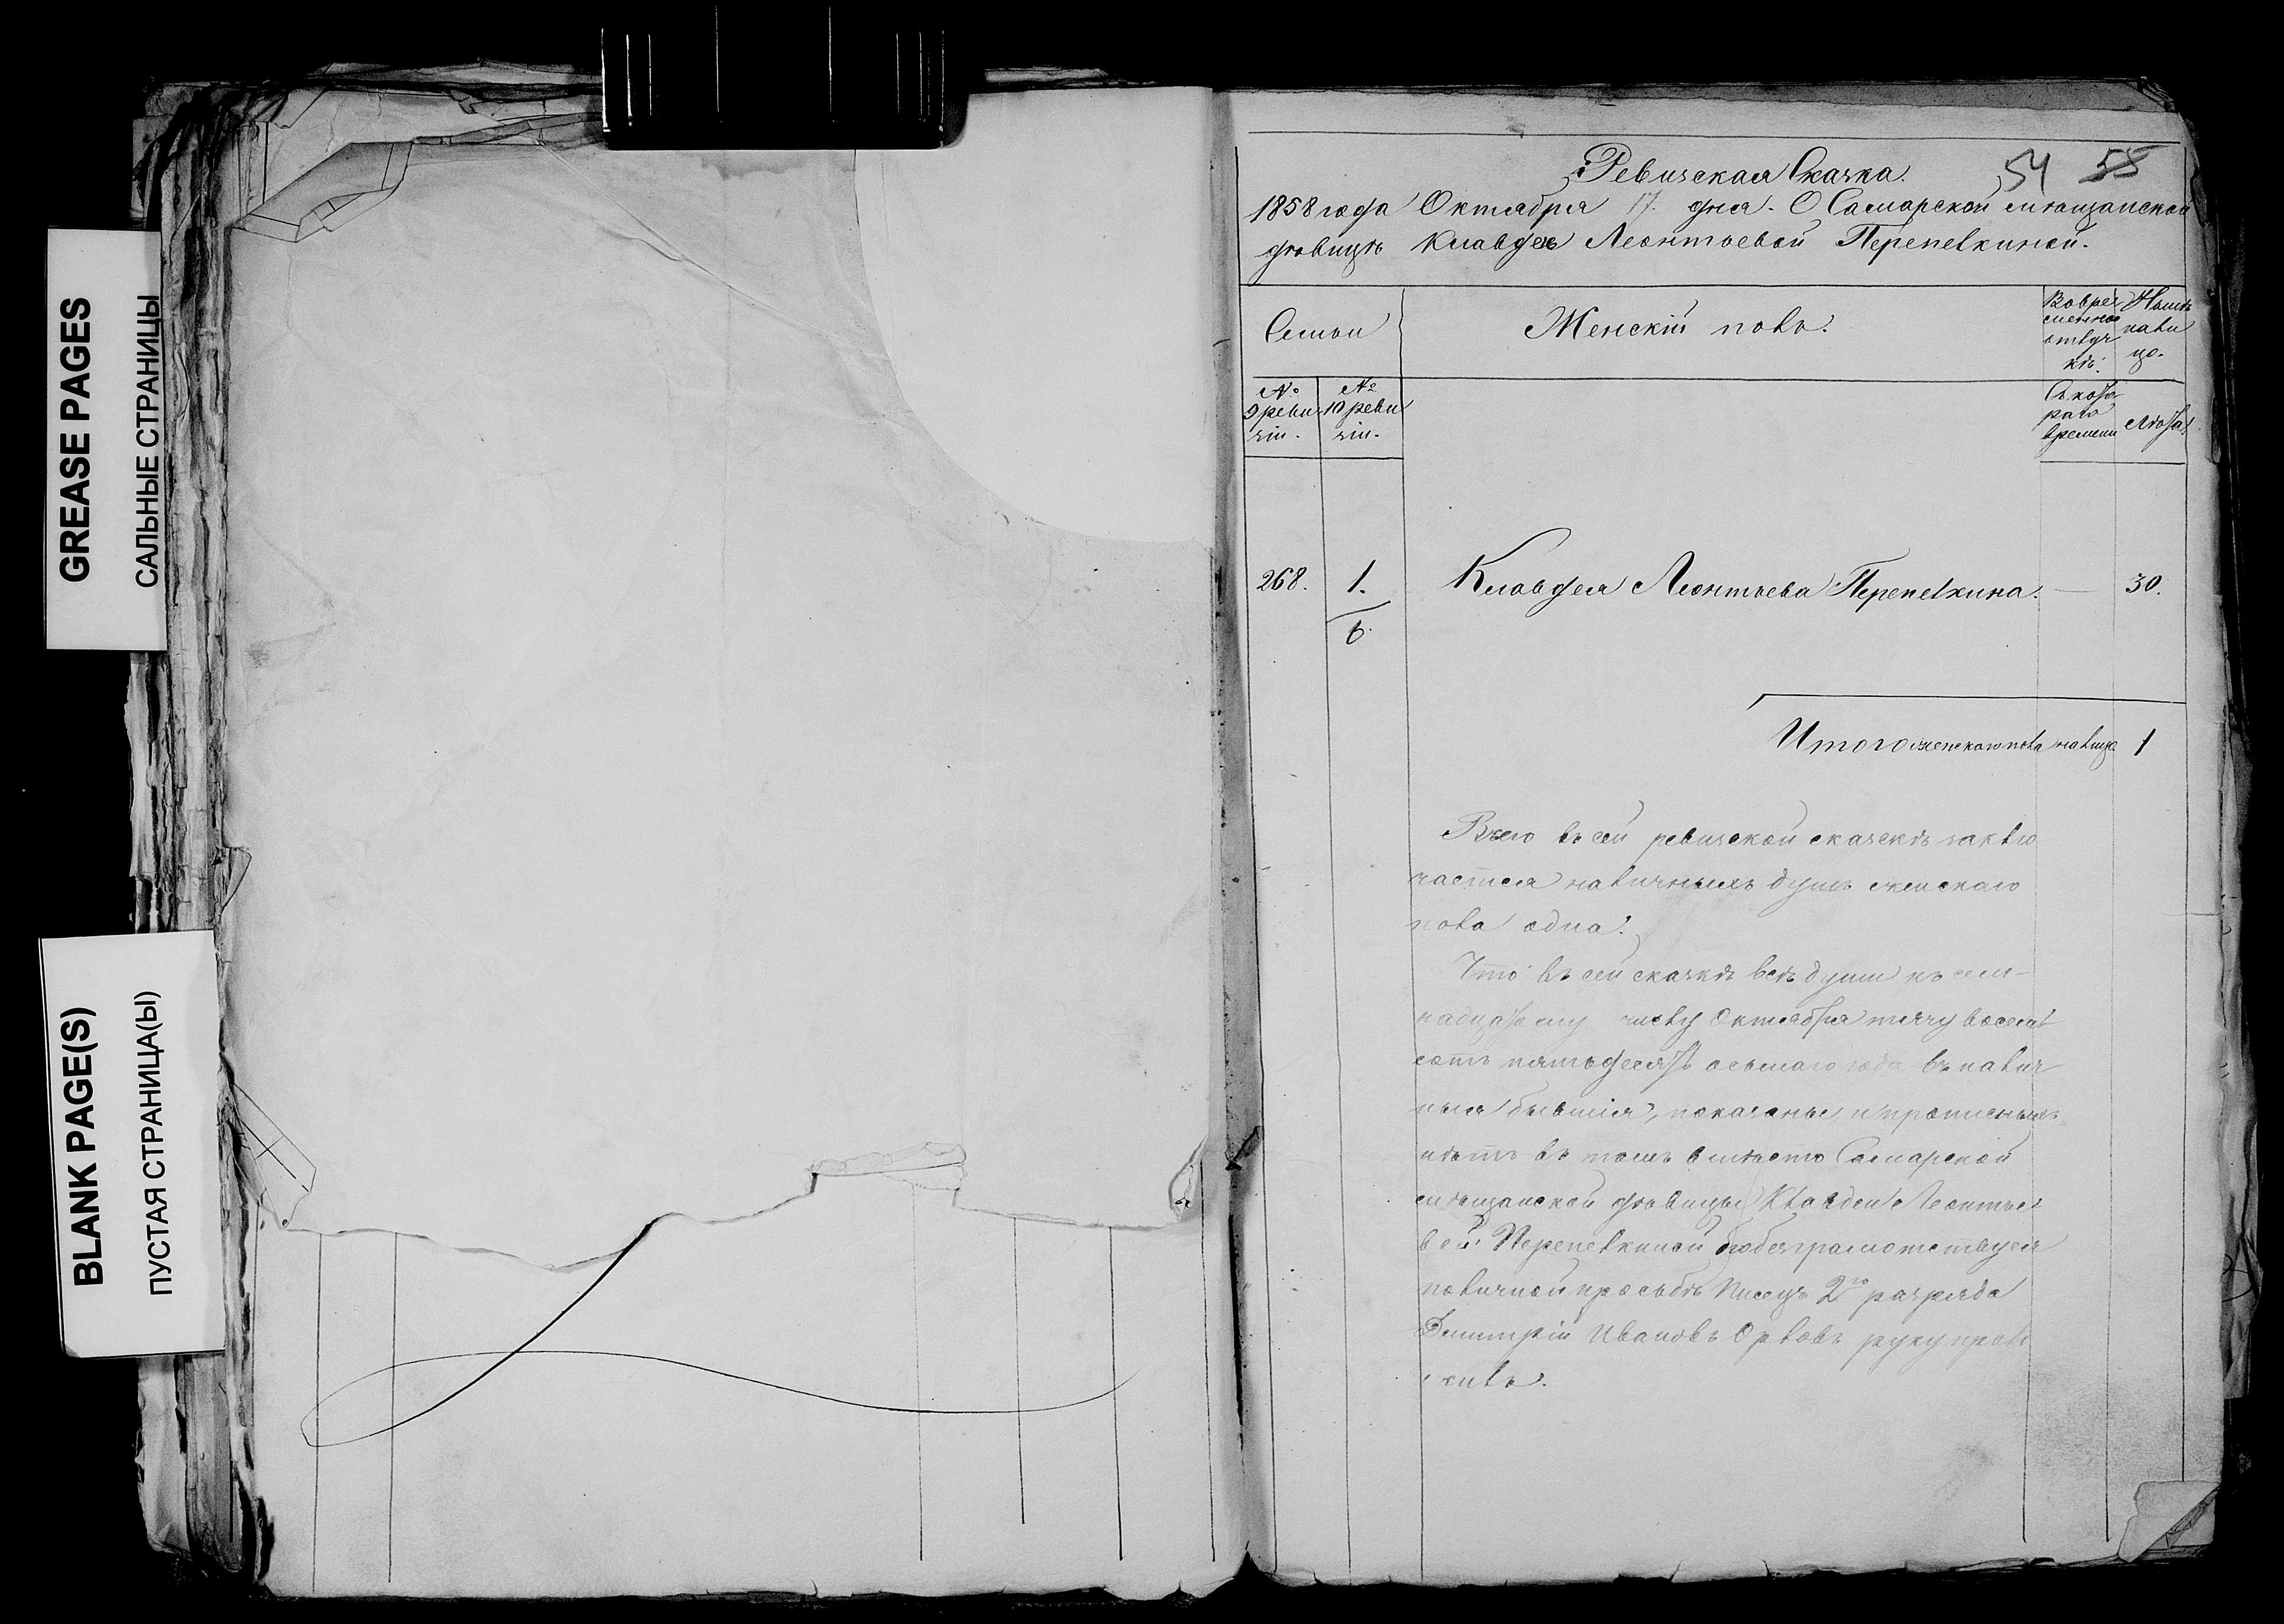 GREASE PAGES
САЛЬНЫЕ СТРАНИЦЫ
BLANK PAGE(S)
ПУСТАЯ СТРАНИЦА(Ы)
54 55
Ревизская Сказка.
1858 года Октября 17. дня. О Самарской мѣщанской
дѣвицѣ Клавдеѣ Леонтьевой Перепелкиной.
Семьи
Женскій полъ.
Во врем
менной
отлуч
кѣ.
Нынѣ
нали
цо.
№
9 реви
зіи.
№
10 реви
зіи.
Съ кото
раго
времени
Лѣта.
268. 1. Клавдея Леонтьева Перепелкина. — 30.
6.
Итого женскаго пола на лицо 1
Всего въ сей ревизской сказкѣ заклю
чается наличныхъ душъ женскаго
пола одна.
Что въ сей сказкѣ всѣ души къ сем-
надцатому числу Октября тысяч восемь
сотъ пятьдесятъ осьмаго года въ налич
ныя бывшія, показаны, и прописныхъ
нѣтъ въ томъ вмѣсто Самарской
мѣщанской дѣвицы Клавдеи Леонтье
вой Перепелкиной
по личной просьбѣ Писецъ 2го разряда
Дмитрій Ивановъ Орловъ руку прило
жилъ.